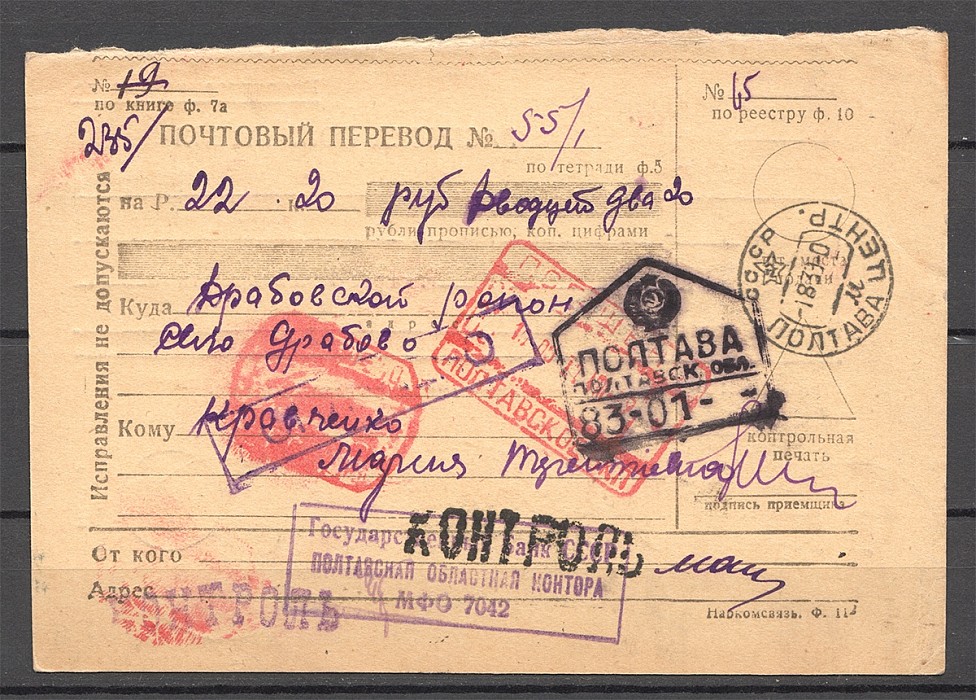 № 19
по книге ф. 7а
235/
ПОЧТОВЫЙ ПЕРЕВОД № 55/1
по тетради ф.5
№ 45
по реестру ф. 10
Исправления не допускаются
на Р. 22 20 руб Двадцать два 20
рубли прописью, коп. цифрами
СССР ПОЛТАВА ЦЕНТР.
Куда Драбовской район
село Драбово
ПОЛТАВА
ПОЛТАВСК. ОБЛ.
83-01-
ПОЛТАВСКОЙ
Кому Кравченко
Мария
контрольная
печать
подпись приемщика
Государственный Банк СССР
ПОЛТАВСКАЯ ОБЛАСТНАЯ КОНТОРА
МФО 7042
КОНТРОЛЬ
От кого
Адрес
КОНТРОЛЬ
Наркомсвязь. Ф. 112